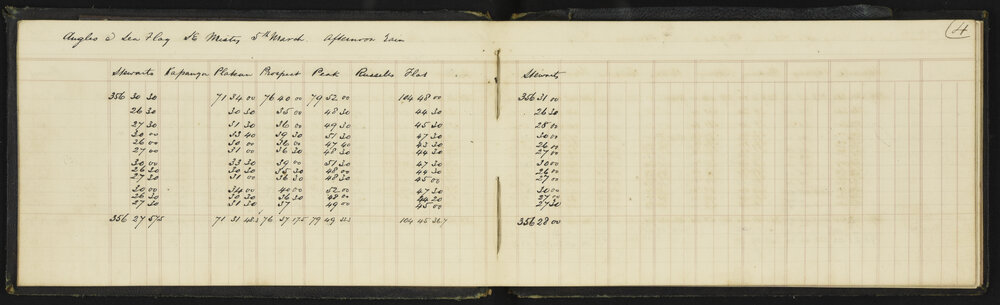 4
Angles @ Sea Flag Stn Misty 5th March Afternoon Rain
Stewarts Kapanga Plateau Prospect Peak Russells Flat Stewarts
356 30 30 71 34 00 76 40 00 79 52 00 104 48 00 356 31 00
26 30 30 30 35 00 48 30 44 30 26 30
27 30 31 30 36 00 49 30 45 30 28 00
30 00 33 40 39 30 51 30 47 30 30 00
26 00 30 00 36 00 47 40 43 30 26 00
27 00 31 00 36 30 48 30 44 30 27 00
30 00 33 30 39 00 51 30 47 30 30 00
26 30 30 30 35 30 48 00 44 30 26 00
27 30 31 00 36 30 48 30 45 00 27 00
30 00 34 00 40 00 52 00 47 30 30 00
26 30 30 30 36 30 48 00 44 20 27 00
27 30 31 30 37 49 00 45 00 27 30
356 27 57.5 71 31 48.3 76 37 17.5 79 49 104 45 356 28 00